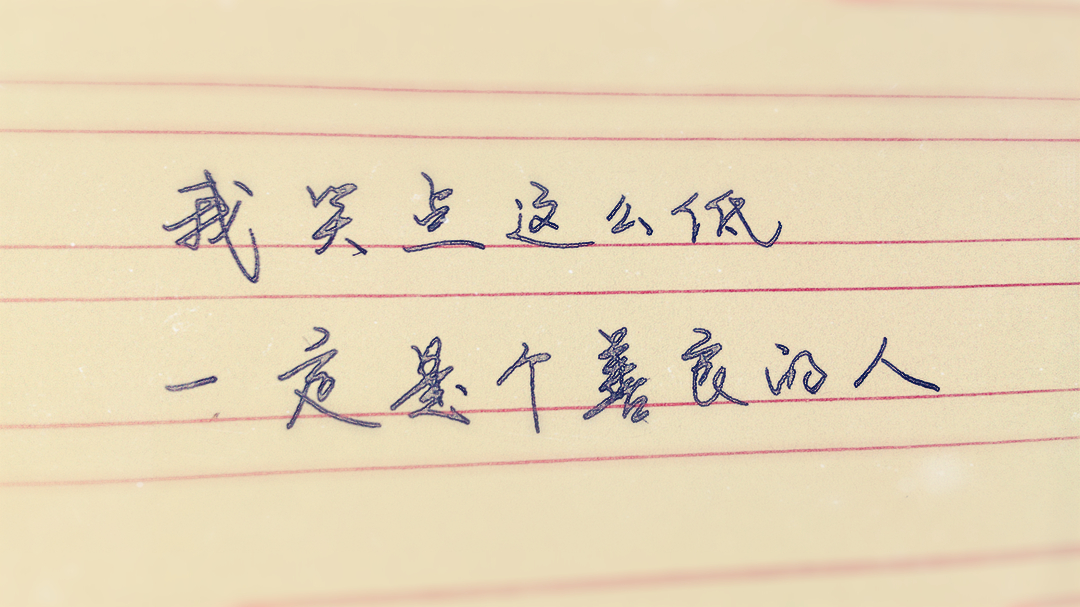 我笑点这么低
一定是个善良的人